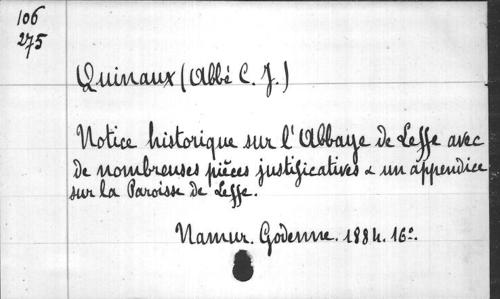 106
275
Quinaux (Abbé C. J.)
Notice historique sur l'Abbaye de Leffe avec
de nombreuses pièces justificatives & un appendice
sur la Paroisse de Leffe.
Namur. Godenne. 1884. 16°.